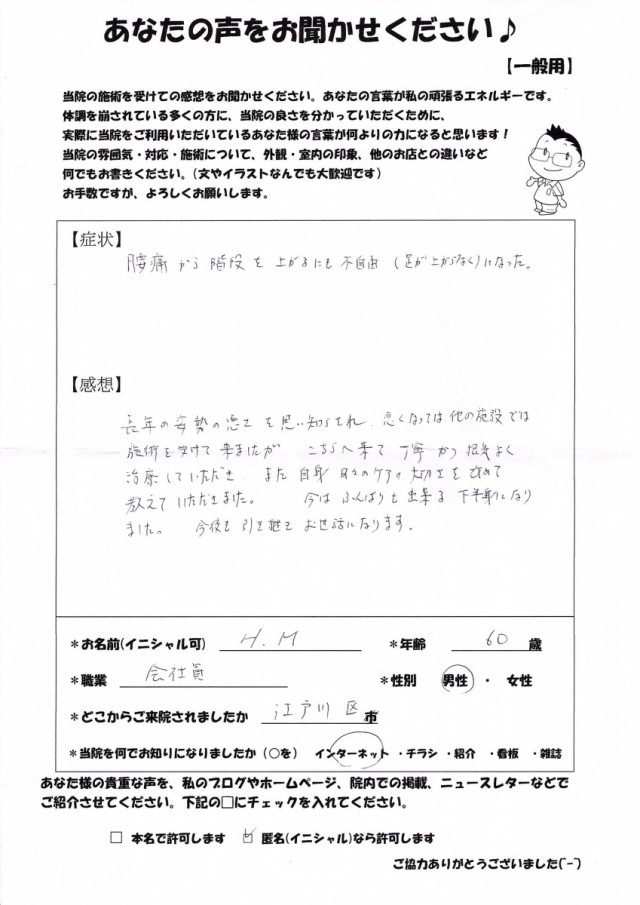 あなたの声をお聞かせください♪
【一般用】
当院の施術を受けての感想をお聞かせください。あなたの言葉が私の頑張るエネルギーです。
体調を崩されている多くの方に、当院の良さを分かっていただくために、
実際に当院をご利用いただいているあなた様の言葉が何よりの力になると思います！
当院の雰囲気・対応・施術について、外観・室内の印象、他のお店との違いなど
何でもお書きください。（文やイラストなんでも大歓迎です）
お手数ですが、よろしくお願いします。
【症状】
腰痛から階段を上がるにも不自由（足が上がらなく）になった。
【感想】
長年の姿勢の悪さを思い知らされ、悪くなっては他の施設では
施術を受けて来ましたが こちらへ来て丁寧かつ根気よく
治療していただき、また自身 日々のケアの大切さを改めて
教えていただきました。 今はふんばりも出来る下半身になり
ました。 今後も引き継きお世話になります。
＊お名前(イニシャル可) H.M ＊年齢 60 歳
＊職業 会社員 ＊性別 男性 ・ 女性
＊どこからご来院されましたか 江戸川区 市
＊当院を何でお知りになりましたか（○を） インターネット ・チラシ ・紹介 ・看板 ・雑誌
あなた様の貴重な声を、私のブログやホームページ、院内での掲載、ニュースレターなどで
ご紹介させてください。下記の□にチェックを入れてください。
□ 本名で許可します ☑ 匿名(イニシャル)なら許可します
ご協力ありがとうございました(^-^)